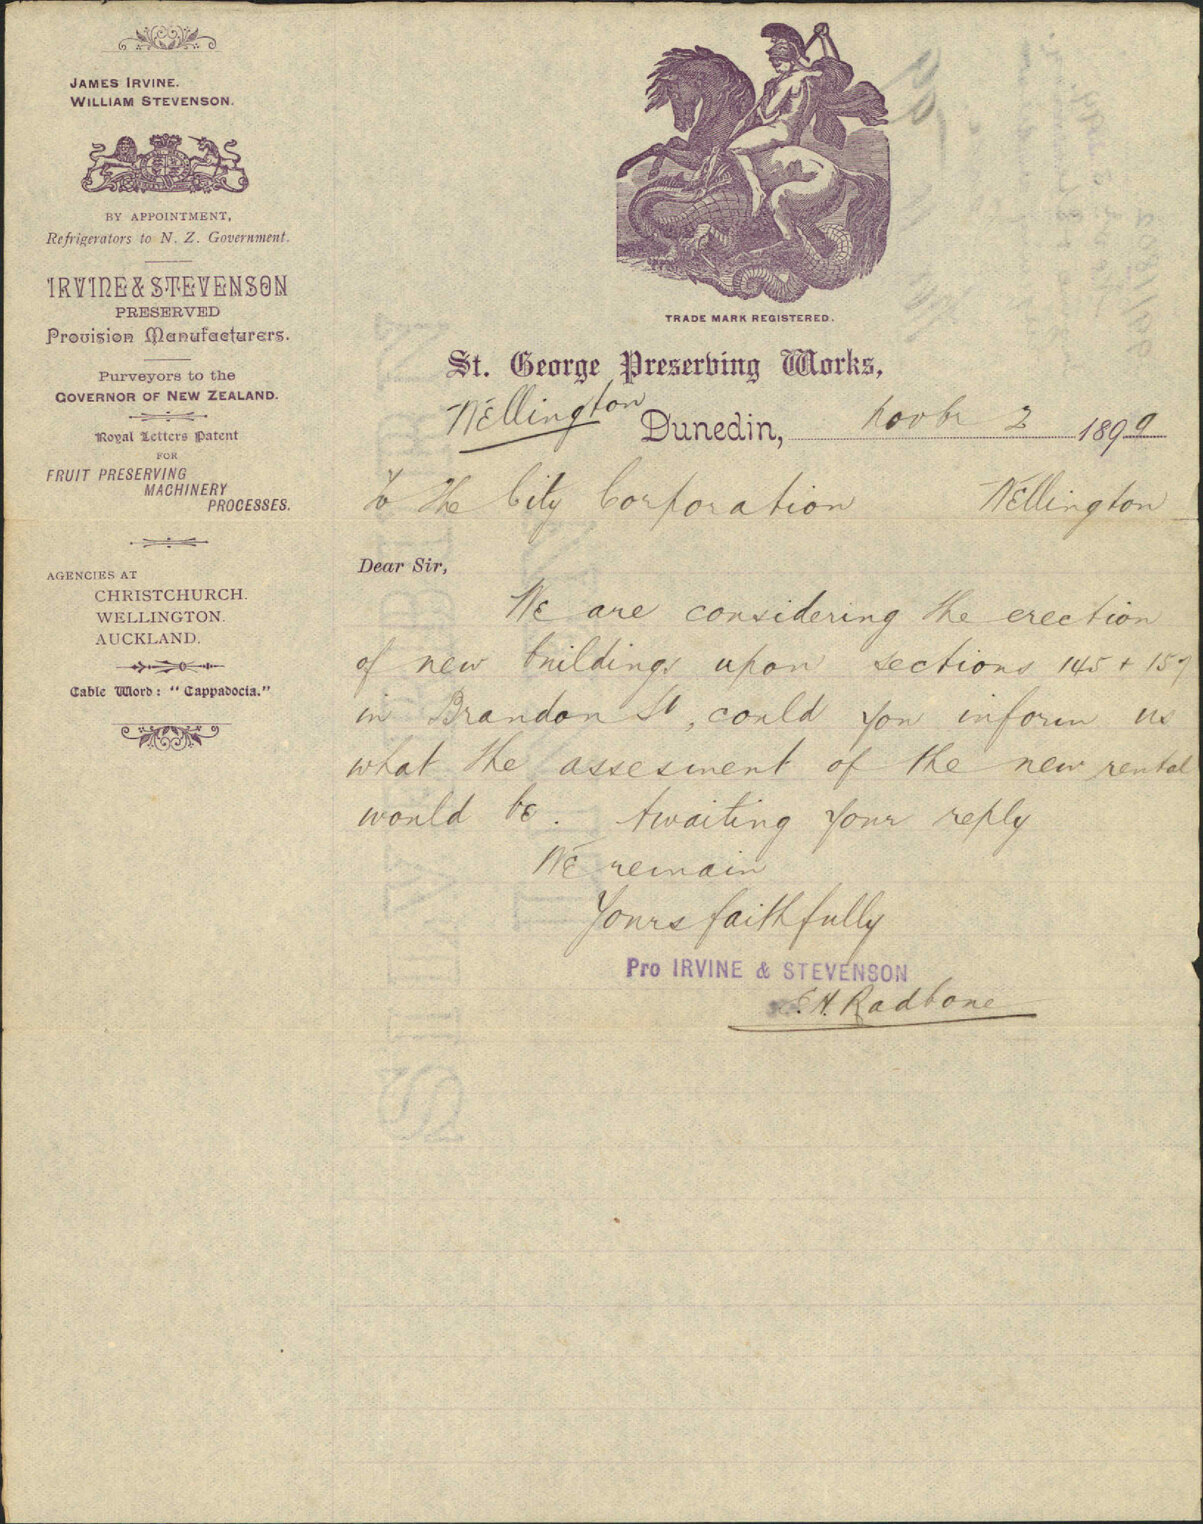 JAMES IRVINE.
WILLIAM STEVENSON.
BY APPOINTMENT,
Refrigerators to N. Z. Government.
IRVINE & STEVENSON
PRESERVED
Provision Manufacturers.
Purveyors to the
GOVERNOR OF NEW ZEALAND.
Royal Letters Patent
FOR
FRUIT PRESERVING
MACHINERY
PROCESSES.
AGENCIES AT
CHRISTCHURCH.
WELLINGTON.
AUCKLAND.
Cable Word: "Cappadocia."
TRADE MARK REGISTERED.
St. George Preserving Works,
Wellington Dunedin, Novbr 2 1899
To the City Corporation Wellington
Dear Sir,
We are considering the erection
of new buildings upon sections 145 + 159
in Brandon St, could you inform us
what the assesment of the new rental
would be. Awaiting your reply
We remain
Yours faithfully
Pro IRVINE & STEVENSON
E.H. Radbone